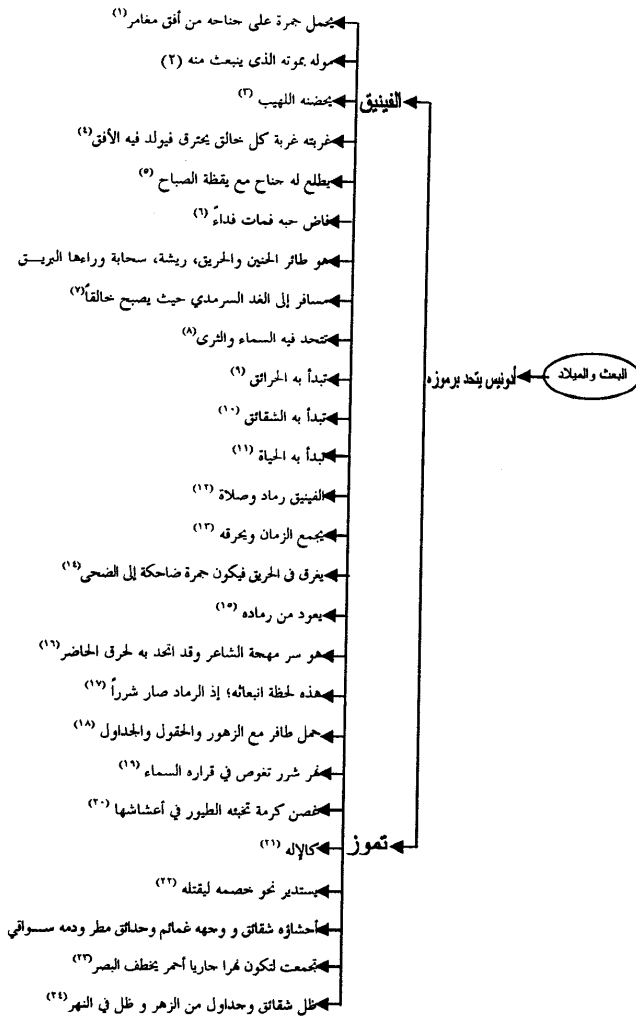 البعث والميلاد
أدونيس يتحد برموزه
الفينيق
يحمل جمرة على جناحه من أفق مغامر(١)
موله بموته الذى ينبعث منه (٢)
يحضنه اللهيب (٣)
غربته غربة كل خالق يحترق فيولد فيه الأفق(٤)
يطلع له جناح مع يقظة الصباح (٥)
فاض حبه فمات فداءً (٦)
هو طائر الحنين والحريق، ريشة، سحابة وراءها البريــق
مسافر إلى الغد السرمدي حيث يصبح خالقاً(٧)
تتحد فيه السماء والثرى(٨)
تبدأ به الحرائق (٩)
تبدأ به الشقائق (١٠)
تبدأ به الحياة (١١)
الفينيق رماد وصلاة (١٢)
يجمع الزمان ويحرقه (١٣)
يغرق فى الحريق فيكون جمرة ضاحكة إلى الضحى(١٤)
يعود من رماده (١٥)
هو سر مهجة الشاعر وقد اتحد به لحرق الحاضر(١٦)
هذه لحظة انبعاثه؛ إذ الرماد صار شرراً (١٧)
تموز
حمل طافر مع الزهور والحقول والجداول (١٨)
نهر شرر تغوص في قراره السماء (١٩)
غصن كرمة تخبئه الطيور في أعشاشها (٢٠)
كالإله (٢١)
يستدير نحو خصمه ليقتله (٢٢)
أحشاؤه شقائق و وجهه غمائم وحدائق مطر ودمه ســواقي
تجمعت لتكون نهرا جاريا أحمر يخطف البصر(٢٣)
ظل شقائق وجداول من الزهر و ظل في النهر (٢٤)